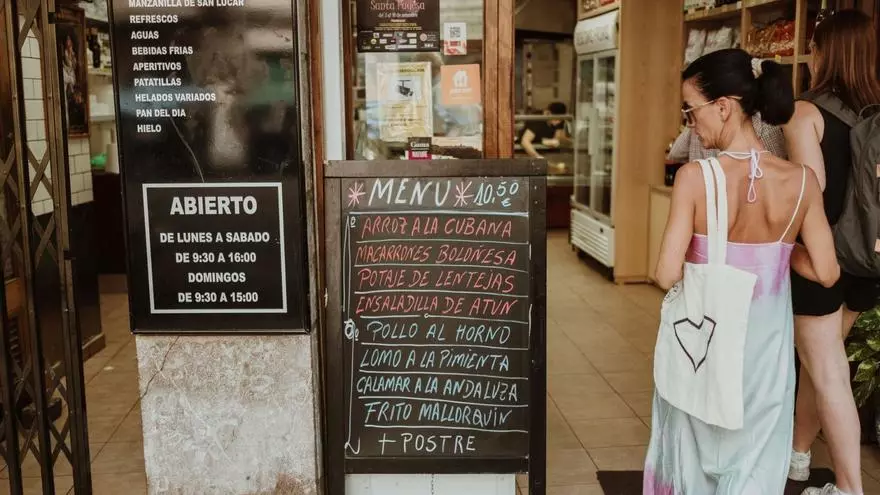 MANZANILLA DE SAN LUCAR
REFRESCOS
AGUAS
BEBIDAS FRIAS
APERITIVOS
PATATILLAS
HELADOS VARIADOS
PAN DEL DIA
HIELO
ABIERTO
DE LUNES A SABADO
DE 9:30 A 16:00
DOMINGOS
DE 9:30 A 15:00
Santa Pagesa
MENU 10,50 €
1º ARROZ A LA CUBANA
MACARRONES BOLOÑESA
POTAJE DE LENTEJAS
ENSALADILLA DE ATUN
2º POLLO AL HORNO
LOMO A LA PIMIENTA
CALAMAR A LA ANDALUZA
FRITO MALLORQUIN
+ POSTRE